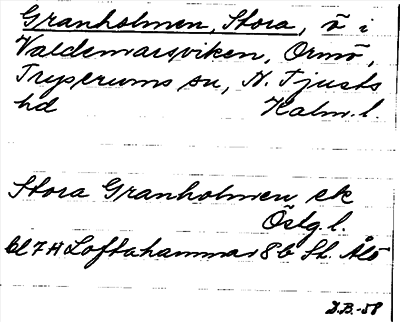 Granholmen, Stora, ö i
Valdemarsviken, Ormö,
Tryserums sn, N. Tjusts
hd Kalm. l.
Stora Granholmen ek
Östg l.
bl 7H Loftahammar 8b St. Ålö
D.B.-58